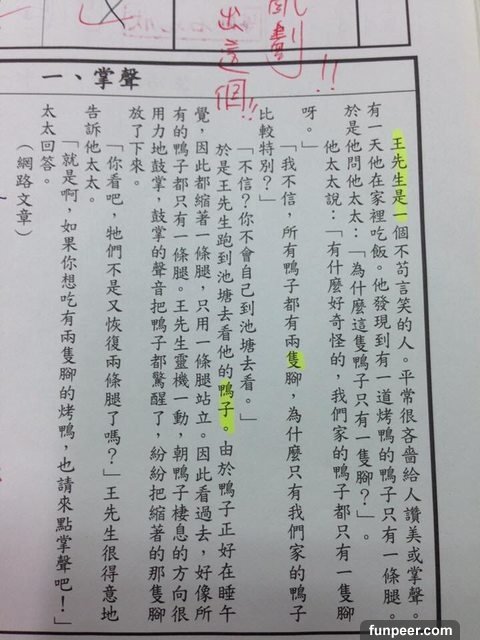 亂劃!!
出這個!!
一、掌聲
王先生是一個不苟言笑的人。平常很吝嗇給人讚美或掌聲。
有一天他在家裡吃飯。他發現到有一道烤鴨的鴨子只有一條腿。
於是他問他太太：「為什麼這隻鴨子只有一隻腳？」。
他太太說：「有什麼好奇怪的，我們家的鴨子都只有一隻腳
呀。」
「我不信，所有鴨子都有兩隻腳，為什麼只有我們家的鴨子
比較特別？」
「不信？你不會自己到池塘去看。」
於是王先生跑到池塘去看他的鴨子。由於鴨子正好在睡午
覺，因此都縮著一條腿，只用一條腿站立。因此看過去，好像所
有的鴨子都只有一條腿。王先生靈機一動，朝鴨子棲息的方向很
用力地鼓掌，鼓掌的聲音把鴨子都驚醒了，紛紛把縮著的那隻腳
放了下來。
「你看吧，牠們不是又恢復兩條腿了嗎？」王先生很得意地
告訴他太太。
「就是啊，如果你想吃有兩隻腳的烤鴨，也請來點掌聲吧！」
太太回答。
（網路文章）
funpeer.com